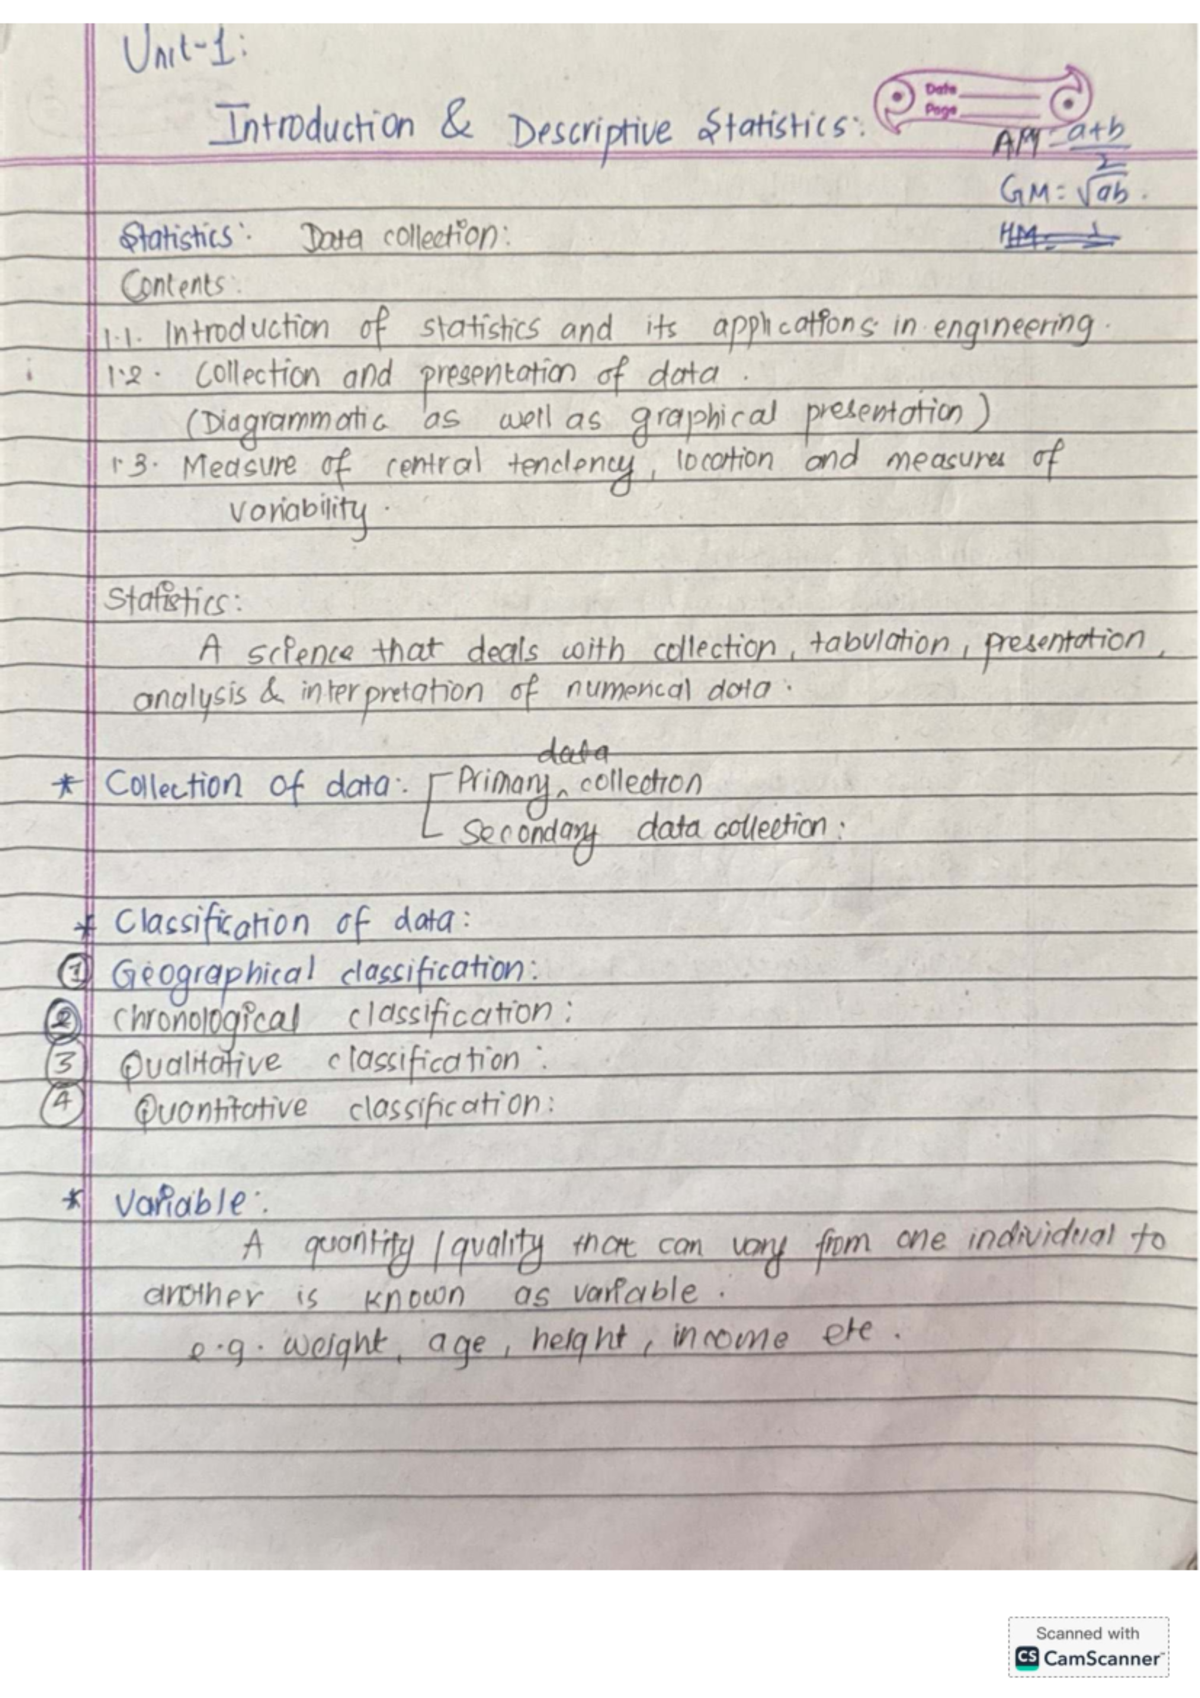 Unit-1:
Introduction & Descriptive Statistics:
Date
Page
AM = a+b/2
GM = √ab.
HM = 1
Statistics: Data collection:
Contents:
1.1. Introduction of statistics and its applications in engineering.
1.2. Collection and presentation of data.
(Diagrammatic as well as graphical presentation)
1.3. Measure of central tendency, location and measures of
variability.
Statistics:
A science that deals with collection, tabulation, presentation,
analysis & interpretation of numerical data.
* Collection of data: Primary data collection
Secondary data collection:
* Classification of data:
① Geographical classification:
② Chronological classification:
③ Qualitative classification:
④ Quantitative classification:
* Variable:
A quantity / quality that can vary from one individual to
another is known as variable.
e.g. weight, age, height, income etc.
Scanned with
CS CamScanner